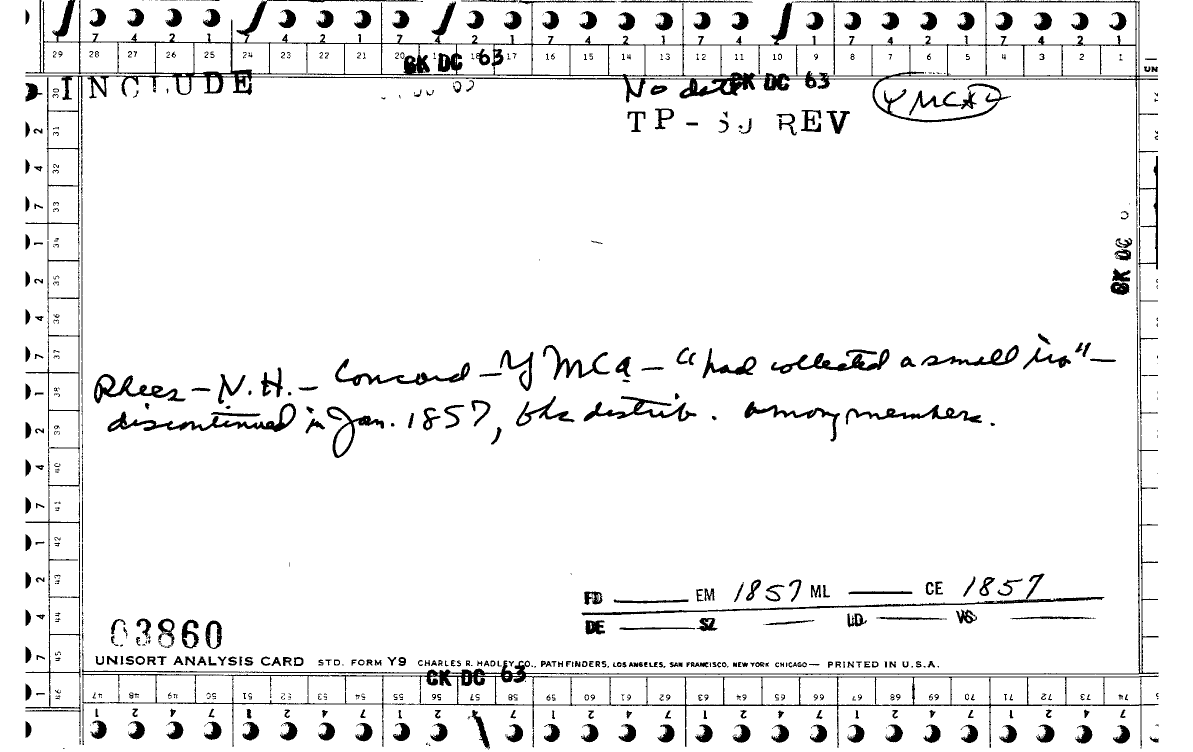 7 4 2 1 7 4 2 1 7 4 2 1 7 4 2 1 7 4 2 1 7 4 2 1 7 4 2 1
29 28 27 26 25 24 23 22 21 20 18 17 16 15 14 13 12 11 10 9 8 7 6 5 4 3 2 1
CK DC 63
INCLUDE
No date CK DC 63
YMCA
TP - REV
CK DC
Rhees - N.H. - Concord - YMCA - "had collected a small
discontinued in Jan. 1857, bks distrib. among members.
FD EM 1857 ML CE 1857
DE SZ LD VS
03860
UNISORT ANALYSIS CARD STD. FORM Y9 CHARLES R. HADLEY CO., PATHFINDERS, LOS ANGELES, SAN FRANCISCO, NEW YORK CHICAGO — PRINTED IN U.S.A.
CK DC 63
47 48 49 50 51 52 53 54 55 56 57 58 59 60 61 62 63 64 65 66 67 68 69 70 71 72 73 74
1 2 4 7 1 2 4 7 1 2 4 7 1 2 4 7 1 2 4 7 1 2 4 7 1 2 4 7